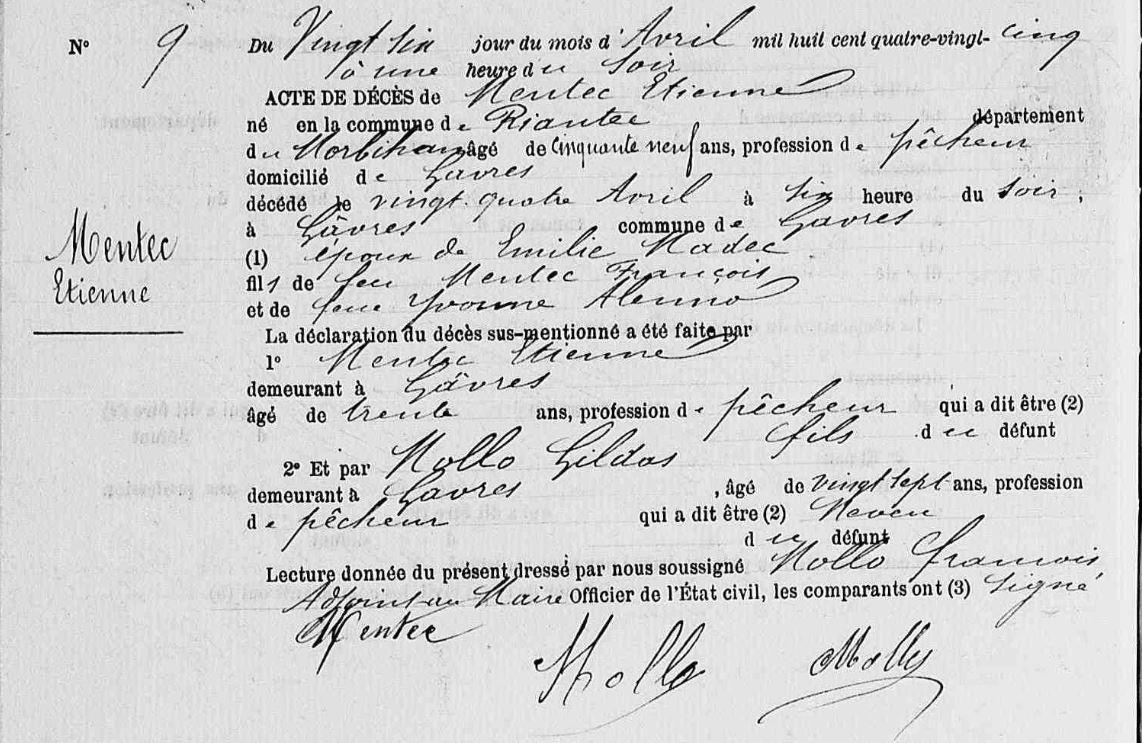 N° 9 Du Vingt six jour du mois d'Avril mil huit cent quatre-vingt-cinq
à une heure du Soir
ACTE DE DÉCÈS de Mentec Etienne
né en la commune de Riantec département
du Morbihan âgé de Cinquante neuf ans, profession de pêcheur
domicilié de Gavres
décédé le vingt quatre Avril à Six heure du Soir,
à Gâvres commune de Gavres
(1) époux de Emilie Madec
fils de feu Mentec François
Mentec
Etienne
et de feue Yvonne Alennio
La déclaration du décès sus-mentionné a été faite par
1° Mentec Etienne
demeurant à Gâvres
âgé de trente ans, profession de pêcheur qui a dit être (2)
fils du défunt
2° Et par Mollo Gildas
demeurant à Gavres, âgé de vingt sept ans, profession
de pêcheur qui a dit être (2) Neveu
du défunt
Lecture donnée du présent dressé par nous soussigné Mollo francois
Adjoint au Maire Officier de l'État civil, les comparants ont (3) Signé
Mentec
Mollo Mollo